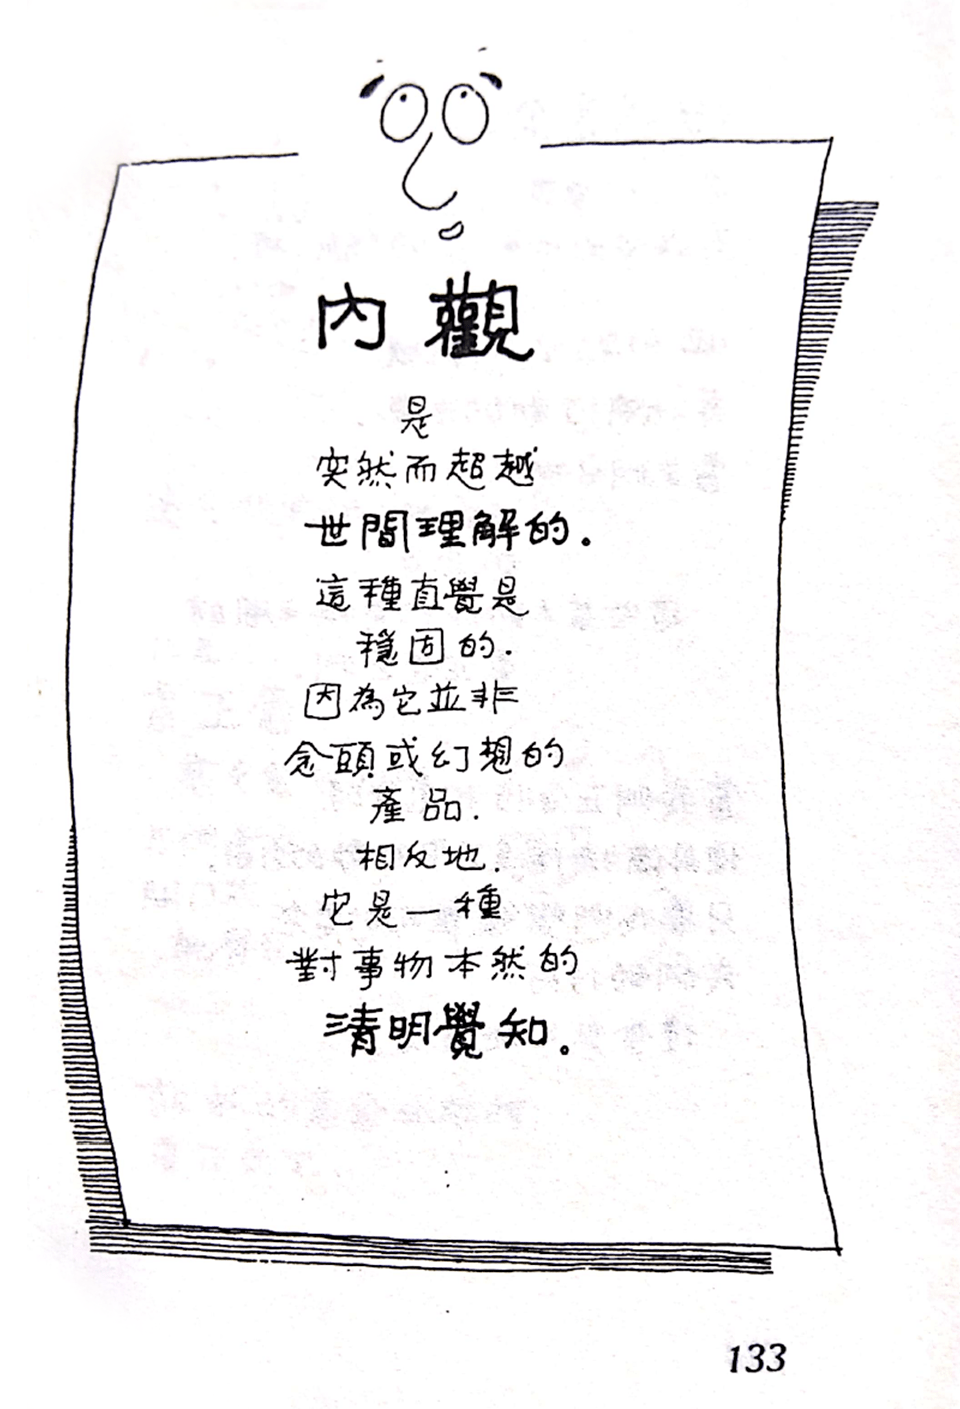 內觀
是
突然而超越
世間理解的.
這種直覺是
穩固的.
因為它並非
念頭或幻想的
產品.
相反地.
它是一種
對事物本然的
清明覺知。
133